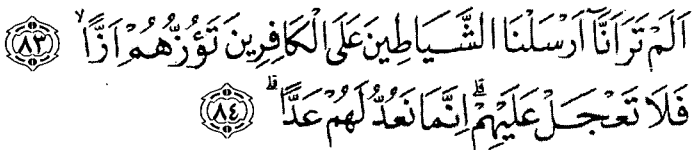 اَلَمْ تَرَ اَنَّٓا اَرْسَلْنَا الشَّيَاطِينَ عَلَى الْكَافِرِينَ تَؤُزُّهُمْ اَزًّاۙ ﴿٨٣﴾
فَلَا تَعْجَلْ عَلَيْهِمْۜ اِنَّمَا نَعُدُّ لَهُمْ عَدًّاۚ ﴿٨٤﴾